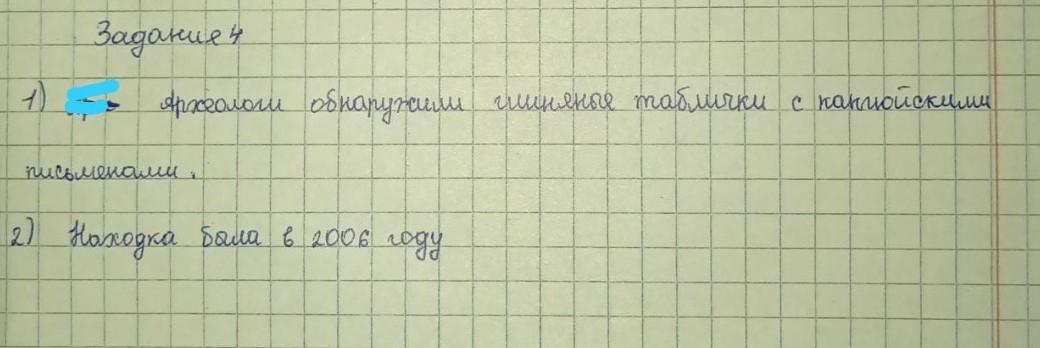 Задание 4
1) Археологи обнаружили глиняные таблички с
письменами.
2) Находка была в 2006 году